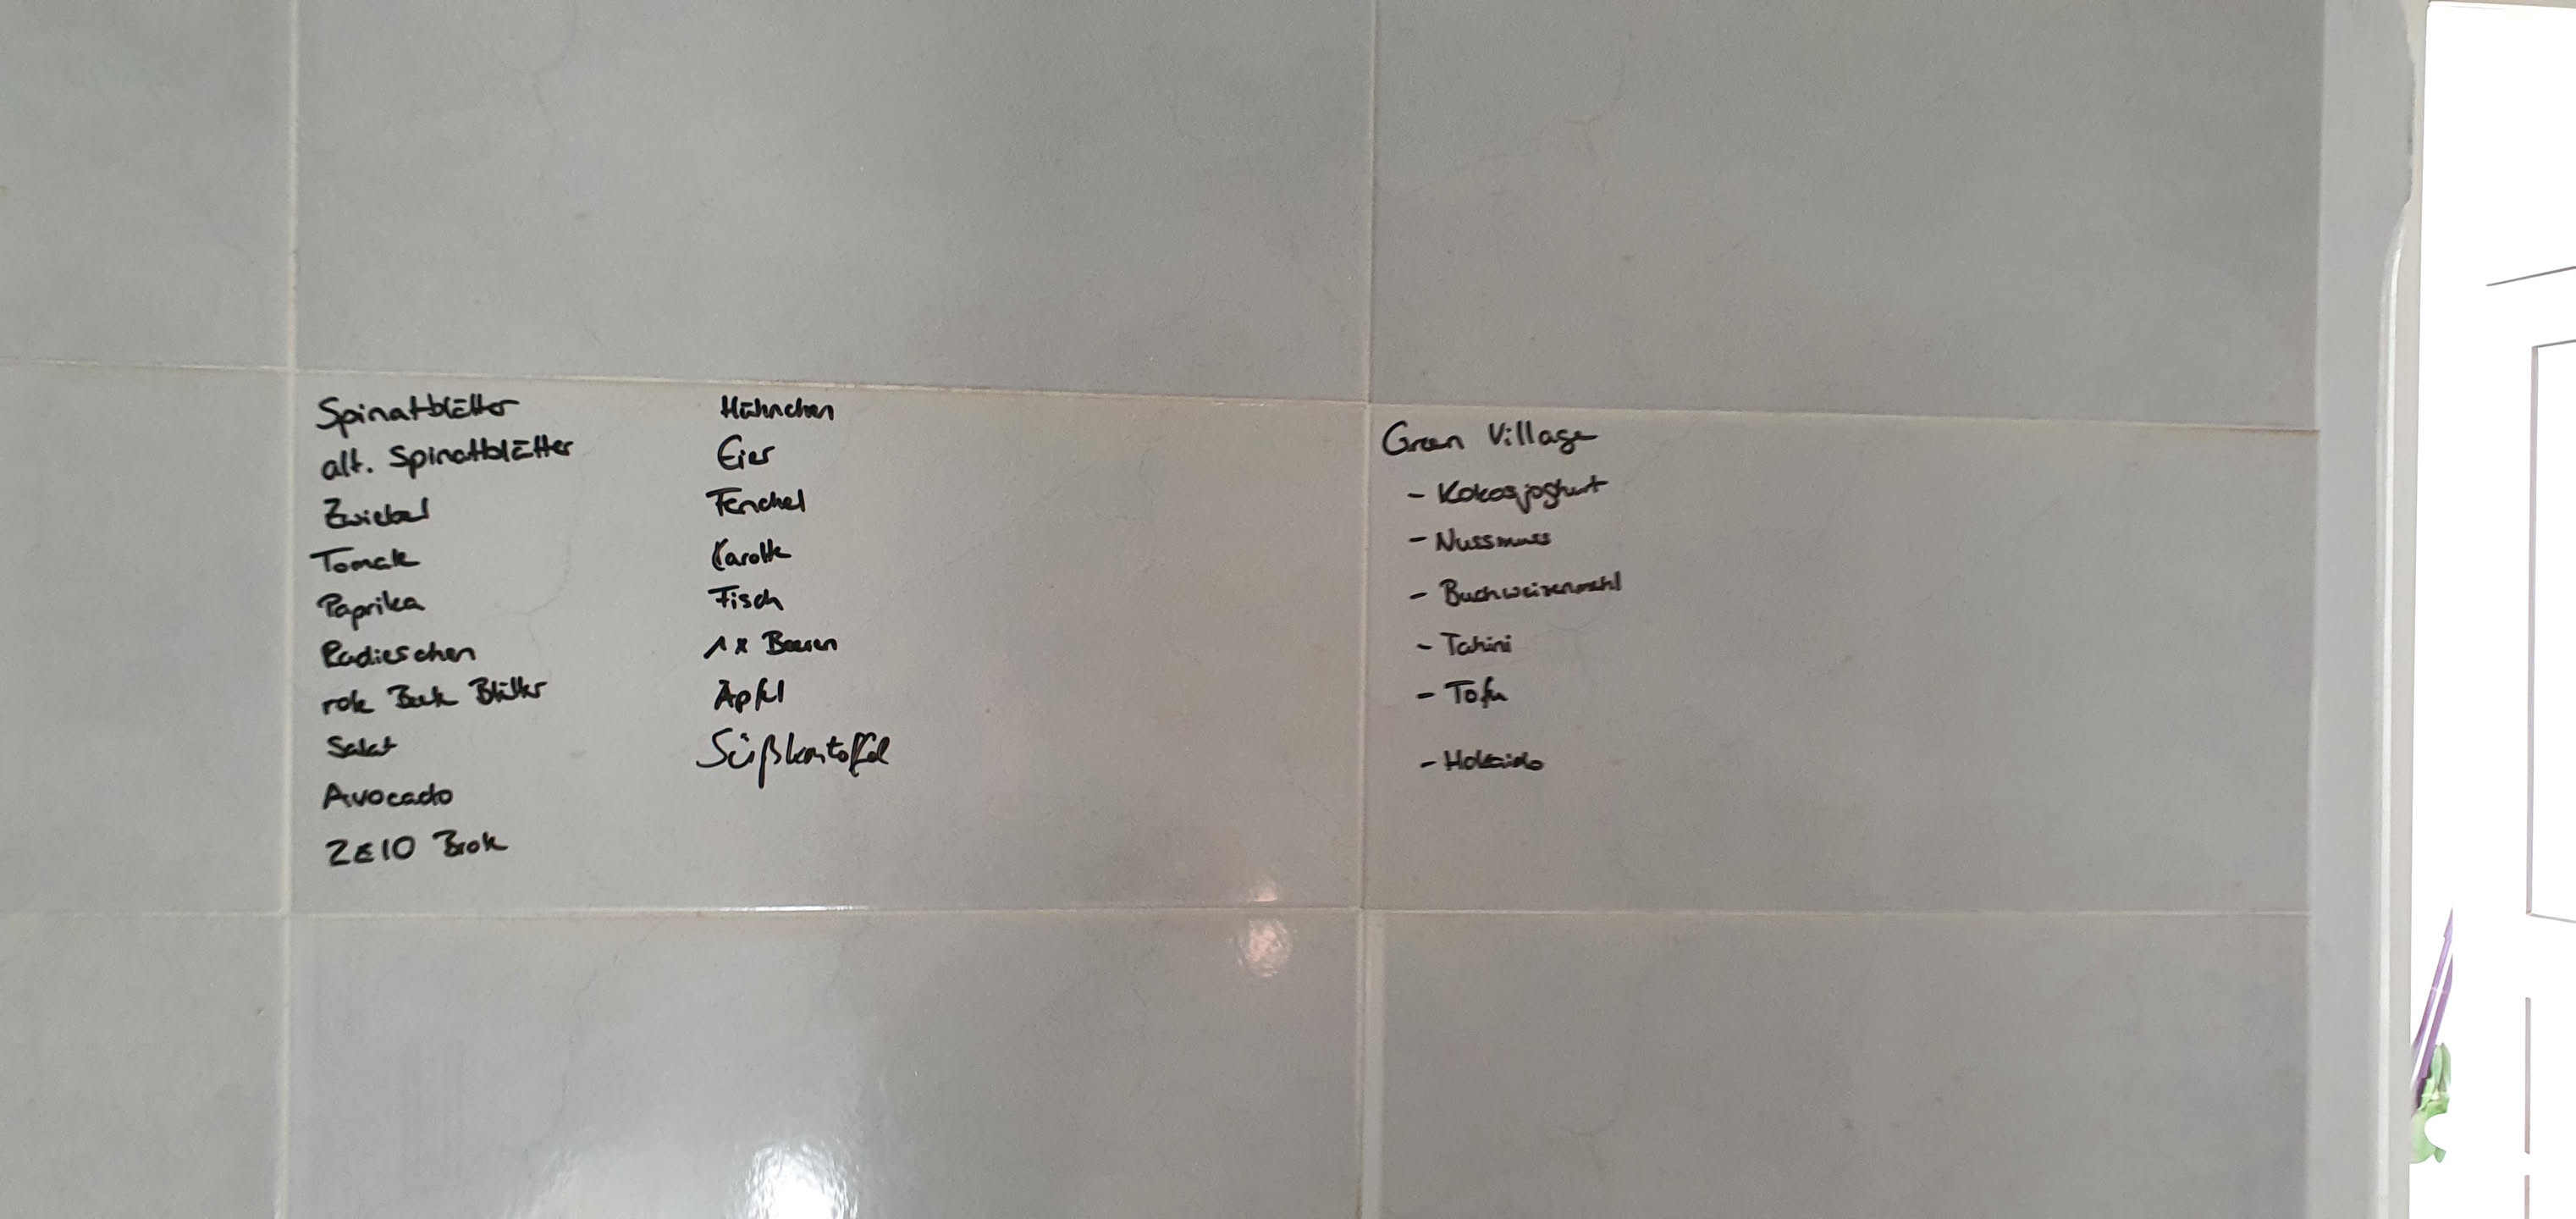 Spinatblätter
alt. Spinatblätter
Zwiebel
Tomate
Paprika
Radieschen
rote Beete Blätter
Salat
Avocado
Brote
Hühnchen
Eier
Fenchel
Karotte
Fisch
1x Beeren
Äpfel
Süßkartoffel
Green Village
- Kokosjoghurt
- Nussmuss
- Buchweizenmehl
- Tahini
- Tofu
- Hokaido